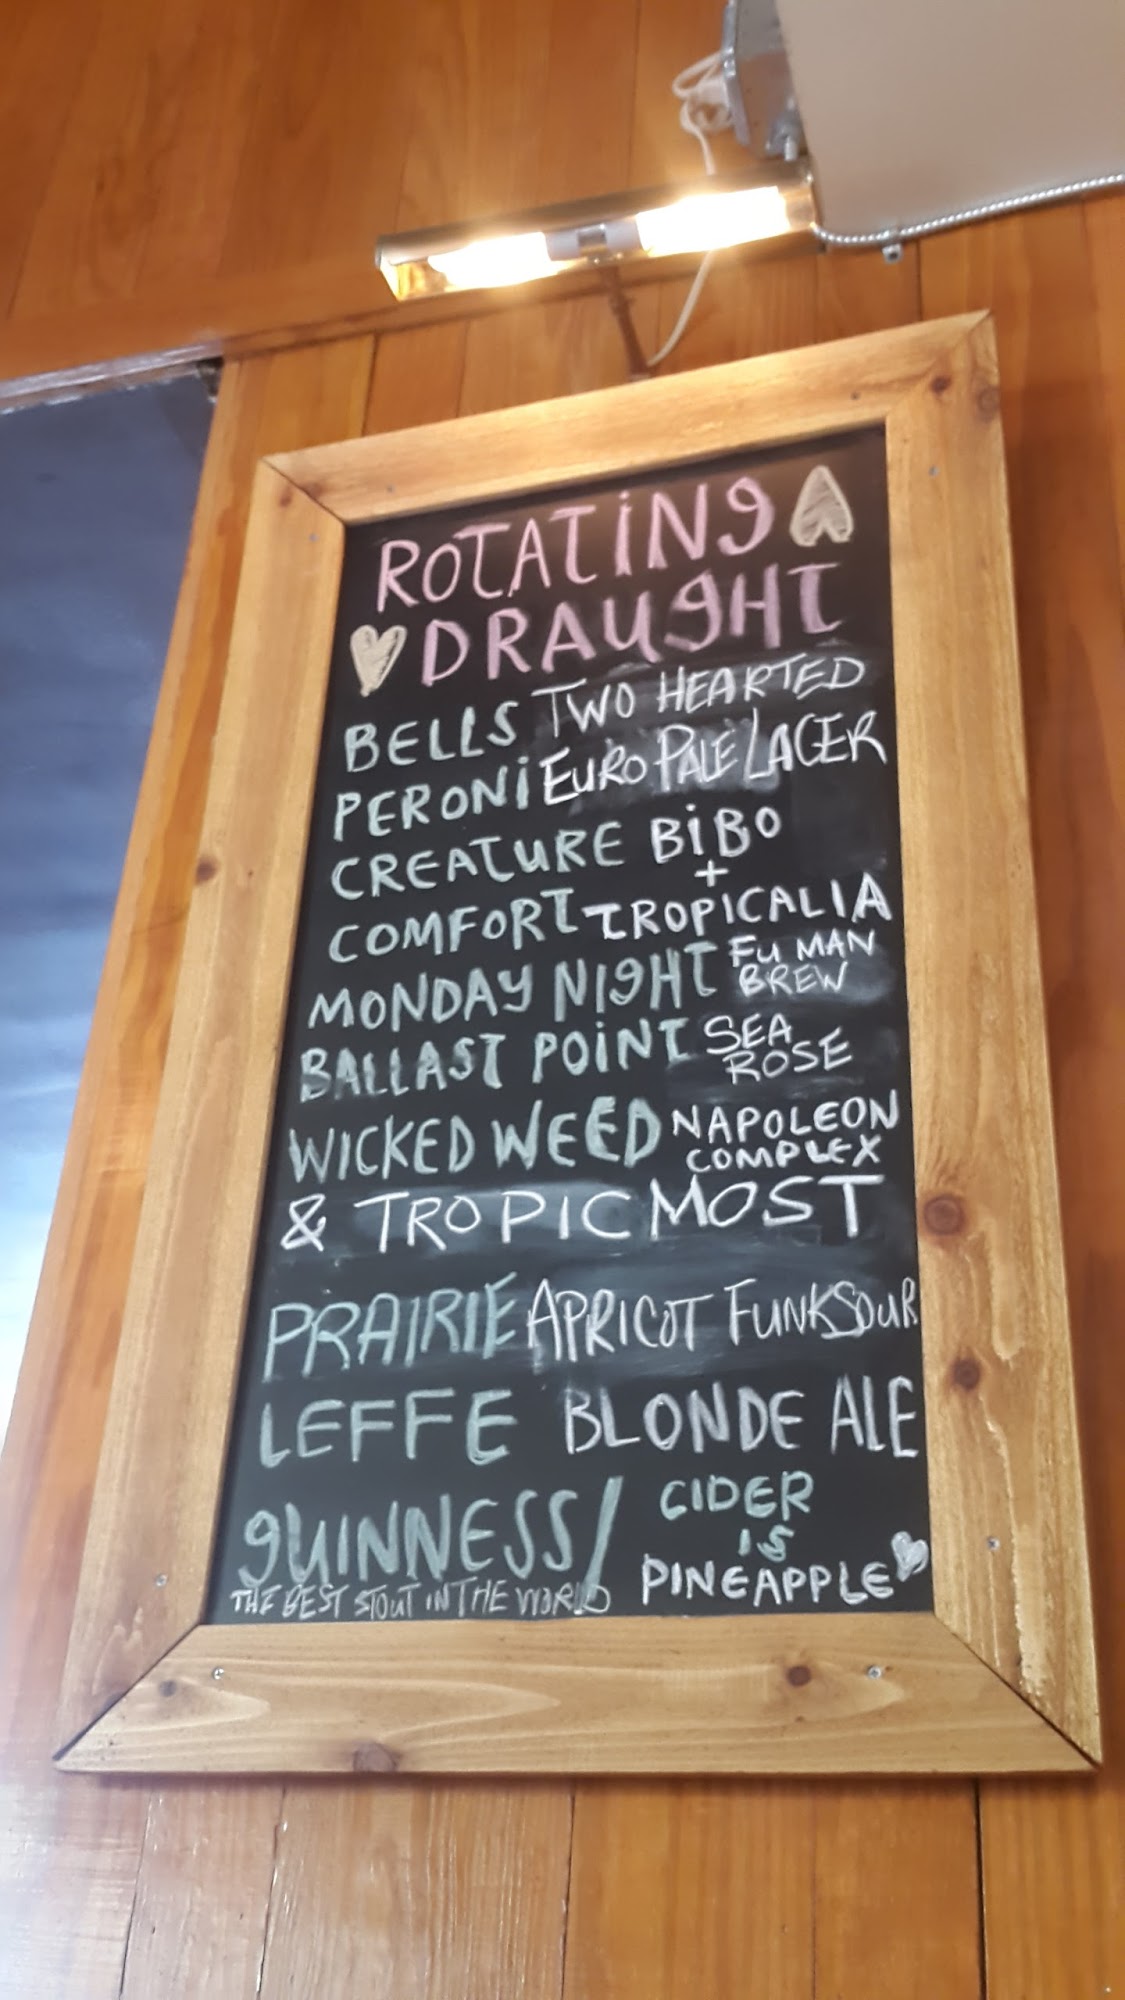 ROTATING
DRAUGHT
BELLS TWO HEARTED
PERONI EURO PALE LAGER
CREATURE BIBO
+
COMFORT TROPICALIA
MONDAY NIGHT FU MAN
BREW
BALLAST POINT SEA
ROSE
WICKED WEED NAPOLEON
COMPLEX
& TROPICMOST
PRAIRIE APRICOT FUNK SOUR
LEFFE BLONDE ALE
GUINNESS/
THE BEST STOUT IN THE WORLD
CIDER
IS
PINEAPPLE